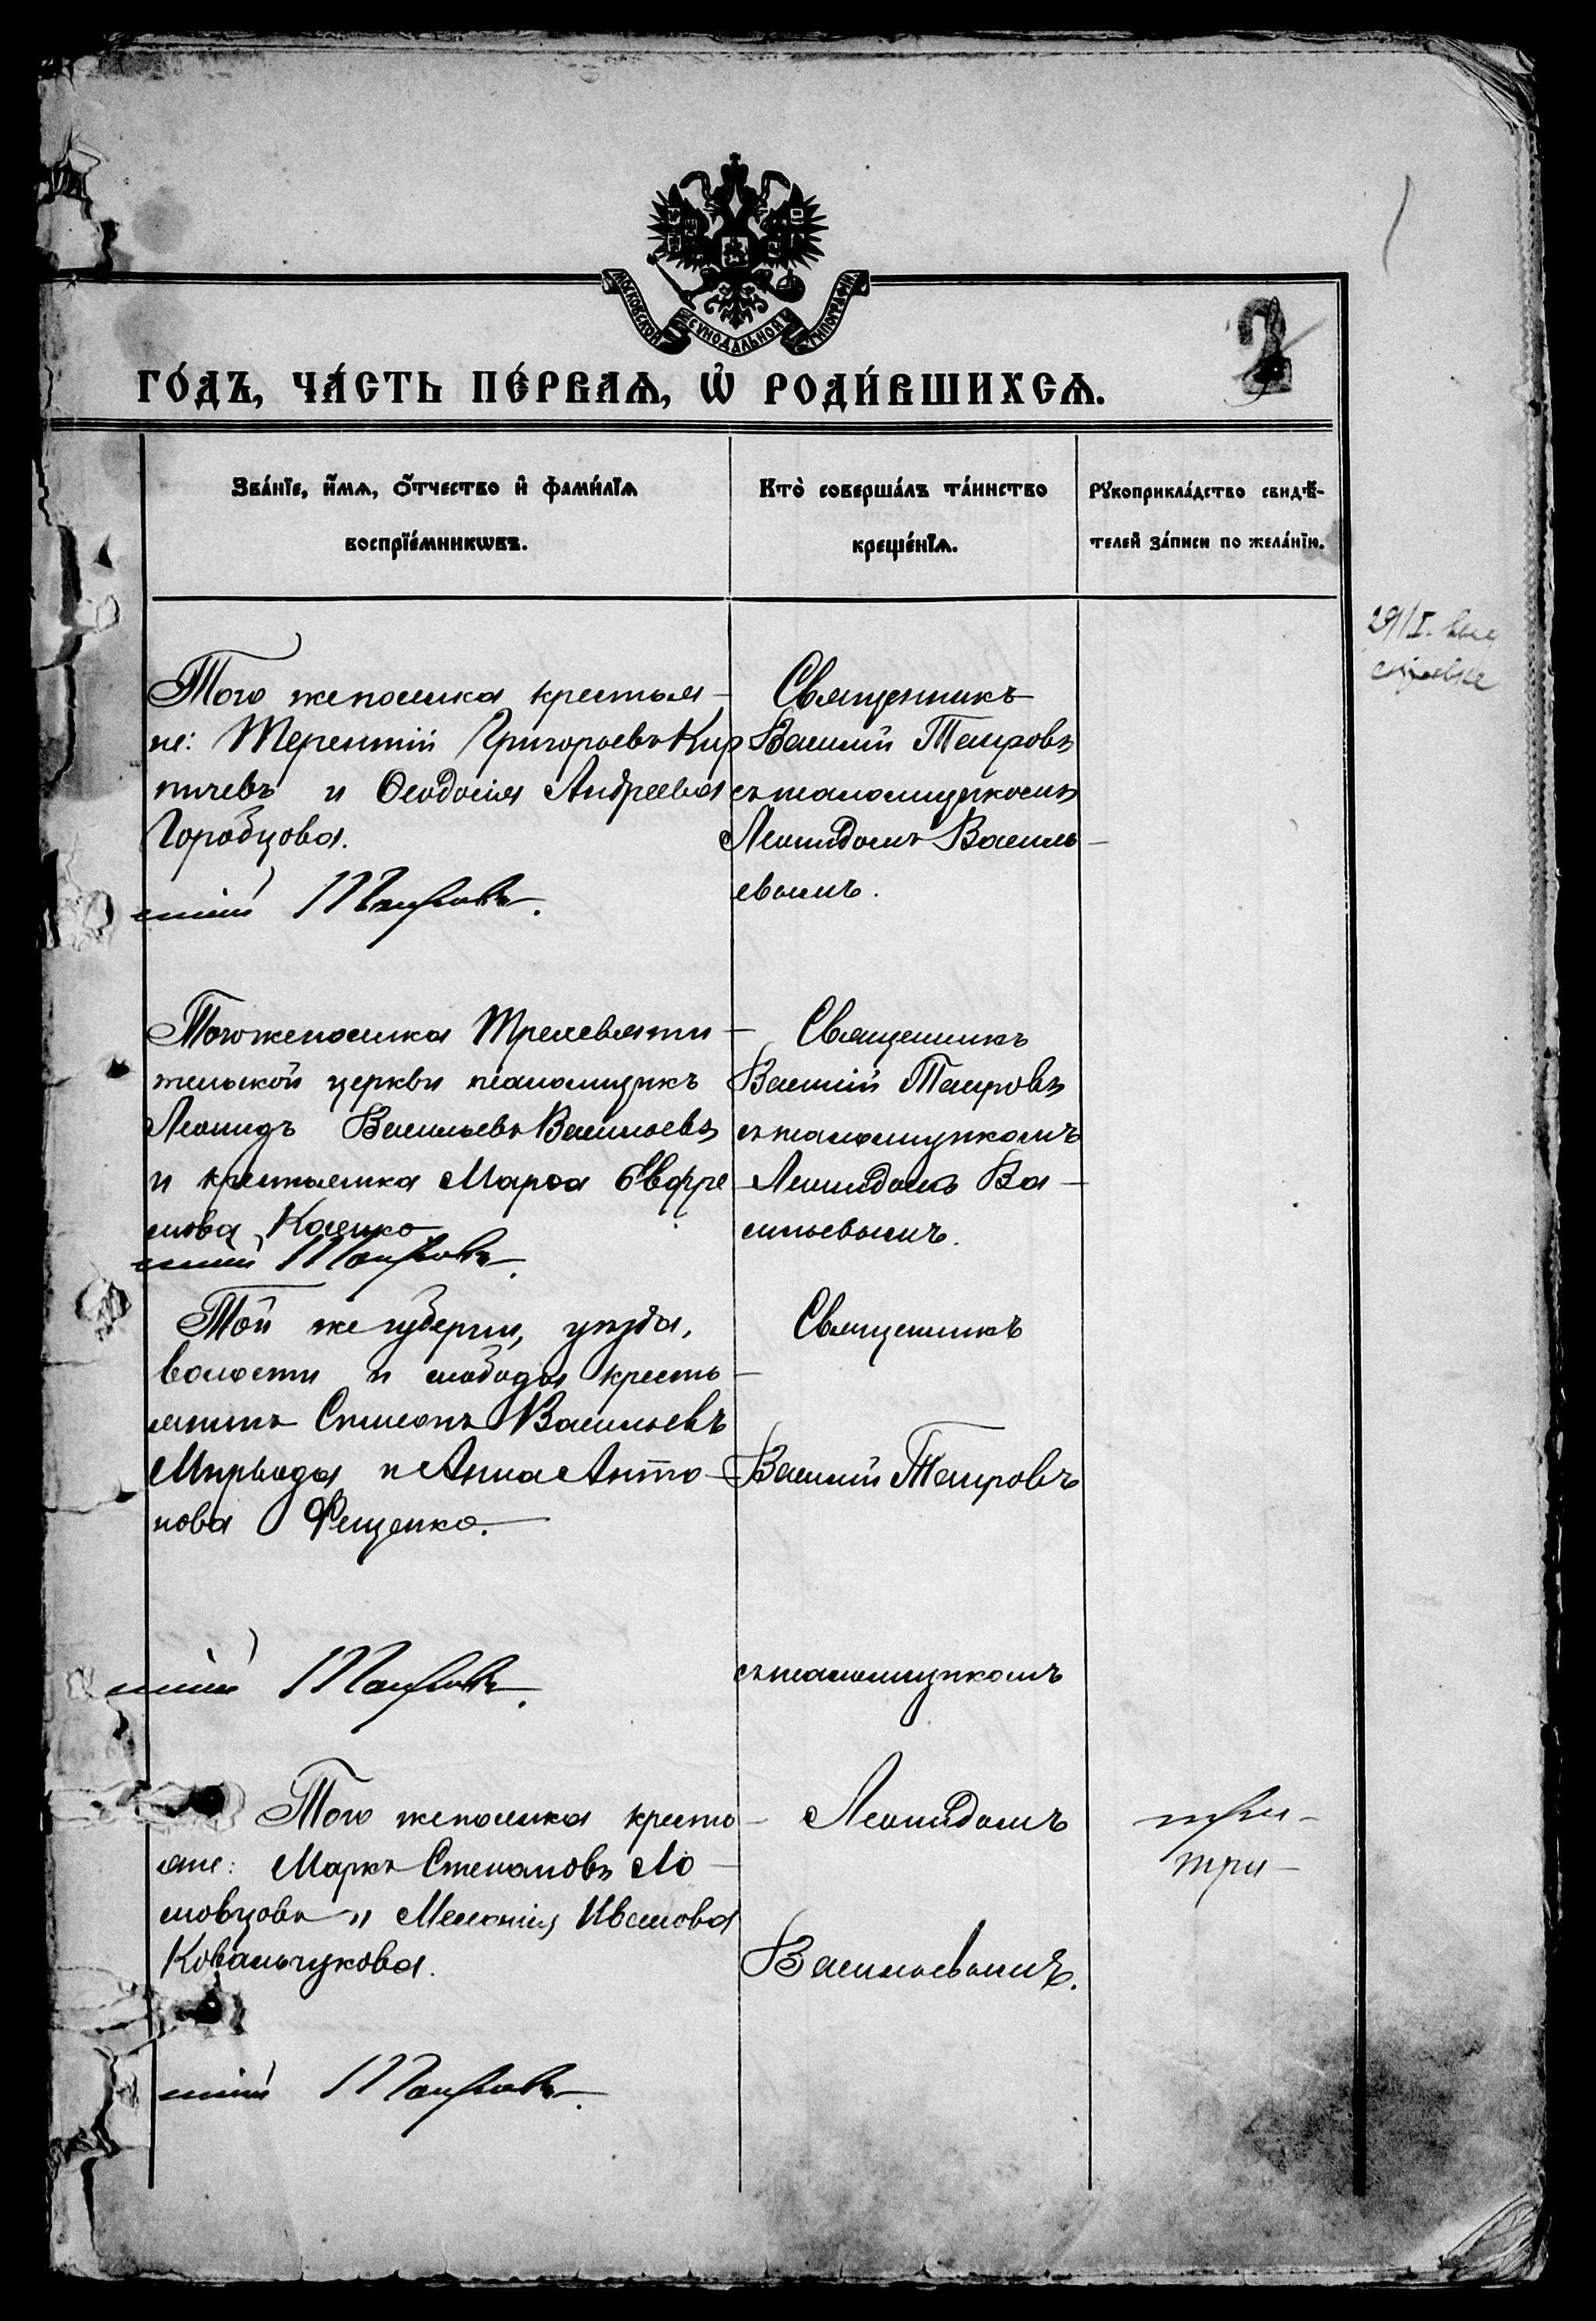 МОСКОВСКОЙ СѴНОДАЛЬНОЙ ТИПОГРАФІИ
2
ГО́ДЪ, ЧА́СТЬ ПЕ́РВАѦ, Ѡ҆ РОДИ́ВШИХСѦ.
Зва́нїе, и҆́мѧ, ѻ҆́тчество и҆ фами́лїѧ
воспрїе́мникѡвъ.
Кто̀ соверша́лъ та́инство
креще́нїѧ.
Рꙋкоприкла́дство свидѣ́-
телей за́писи по жела́нїю.
29/I.
Того же поселка крестья-
не: Терентій Григорьевъ Кир
пичевъ и Ѳеодосія Андреева
Горобцова.
силій Таировъ.
Священникъ
Василій Таировъ
съ псаломщикомъ
Леонидомъ Василь-
евымъ.
Того же поселка Трехсвяти-
тельской церкви псаломщикъ
Леонидъ Васильевъ Васильевъ
и крестьянка Марѳа Евфре
мова Косенко
силій Таировъ.
Священникъ
Василій Таировъ
съ псаломщикомъ
Леонидомъ Ва-
сильевымъ.
Той же губерніи, уѣзда,
волости и слободы кресть-
янинъ Симеонъ Васильевъ
Мирвода и Анна Анто-
нова Фещенко.
силій Таировъ.
Священникъ
Василій Таировъ
съ псаломщикомъ
Того же поселка кресть-
яне: Маркъ Степановъ Ло-
мовцовъ и Меланія Иванова
Ковальчукова.
силій Таировъ.
Леонидомъ
Васильевымъ.
три-